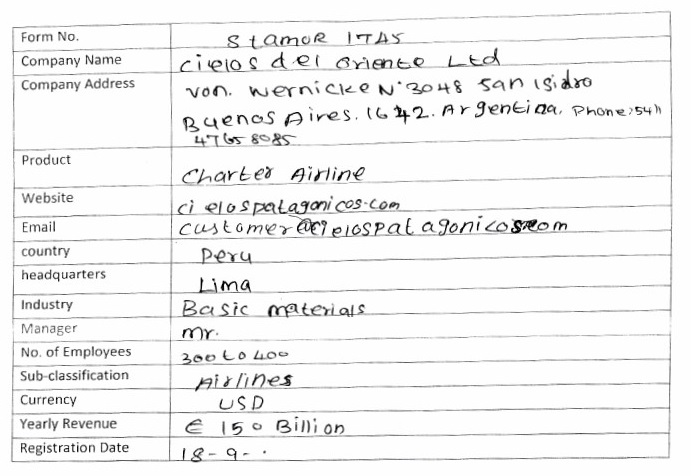 Form No. Stamor 1745
Company Name Cielos del oriente Ltd
Company Address Von. Wernicke N°3048 San Isidro
Buenos Aires. 1642. Argentina, Phone:5411
4765 8085
Product Charter Airline
Website cielospatagonicos.com
Email customer@cielospatagonicos.com
country Peru
headquarters Lima
Industry Basic materials
Manager mr.
No. of Employees 300 to 400
Sub-classification Airlines
Currency USD
Yearly Revenue € 150 Billion
Registration Date 18-9-